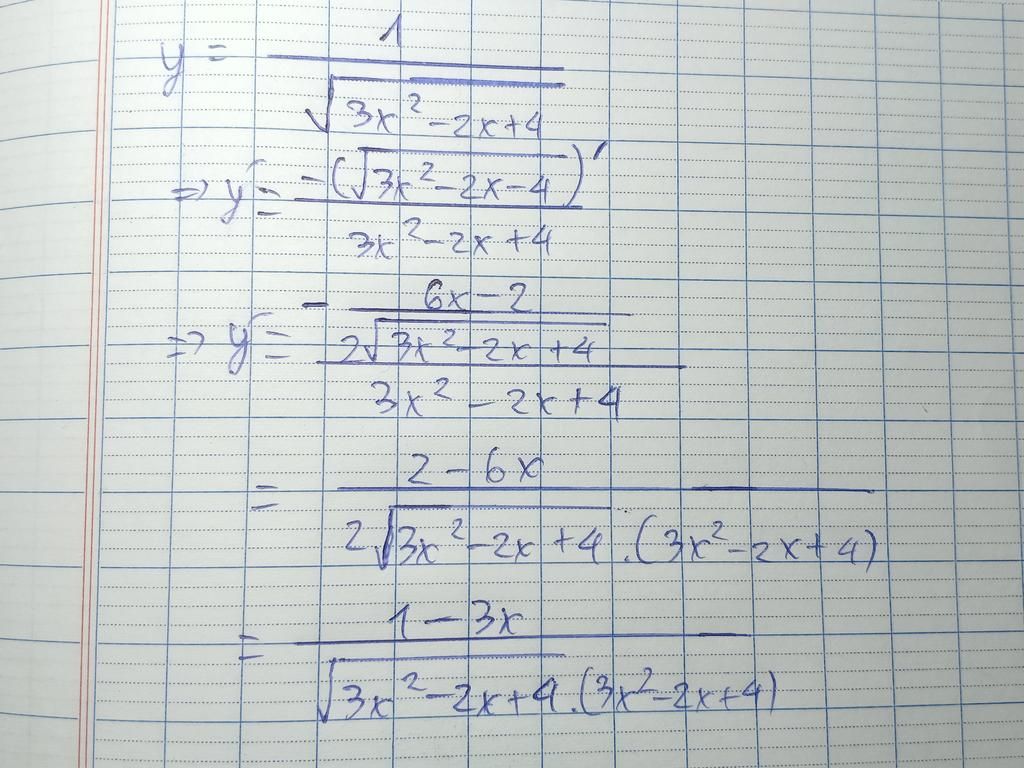 y = 1 / √(3x² - 2x + 4)
=> y' = -(√(3x² - 2x - 4))' / (3x² - 2x + 4)
=> y' = - (6x - 2) / (2√(3x² - 2x + 4)) / (3x² - 2x + 4)
= (2 - 6x) / (2√(3x² - 2x + 4) . (3x² - 2x + 4))
= (1 - 3x) / (√(3x² - 2x + 4) . (3x² - 2x + 4))